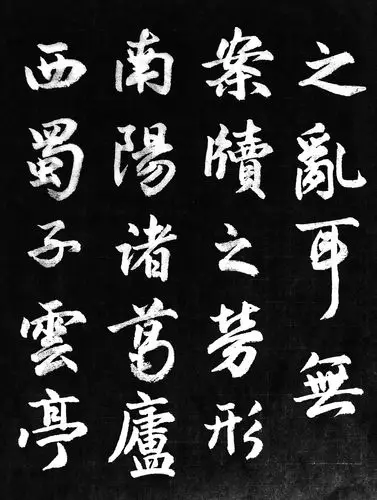 之亂耳無
案牘之劳形
南陽诸葛廬
西蜀子雲亭